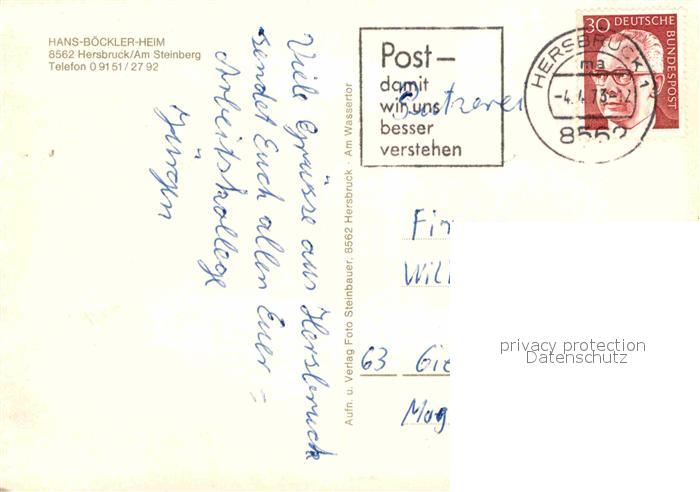 HANS-BÖCKLER-HEIM
8562 Hersbruck/Am Steinberg
Telefon 0 91 51 / 27 92
Viele Grüsse aus Hersbruck
sendet Euch allen Euer =
Arbeitskollege
Jürgen
Aufn. u. Verlag Foto Steinbauer, 8562 Hersbruck · Am Wassertor
Post–
damit
wir uns
besser
verstehen
HERSBRUCK 1
ma
-4.4.73-12
8562
30 DEUTSCHE
BUNDESPOST
Fir
Will
63 Gie
privacy protection
Datenschutz